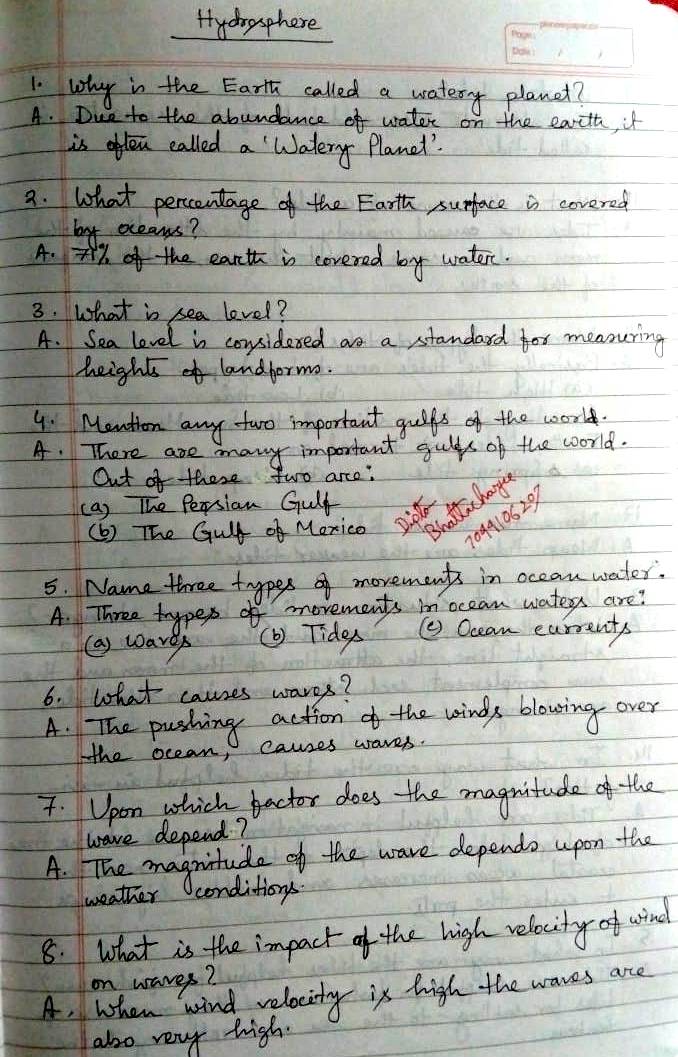 Hydrosphere
Page:
Date: / /
1. Why is the Earth called a watery planet?
A. Due to the abundance of water on the earth, it
is often called a 'Watery Planet'.
2. What percentage of the Earth surface is covered
by oceans?
A. 71% of the earth is covered by water.
3. What is sea level?
A. Sea level is considered as a standard for measuring
heights of landforms.
4. Mention any two important gulfs of the world.
A. There are many important gulfs of the world.
Out of these two are:
(a) The Persian Gulf
(b) The Gulf of Mexico
Dipto
Bhattacharjie
7099106297
5. Name three types of movements in ocean water.
A. Three types of movements in ocean waters are:
(a) Waves (b) Tides (c) Ocean currents
6. What causes waves?
A. The pushing action of the winds blowing over
the ocean, causes waves.
7. Upon which factor does the magnitude of the
wave depend?
A. The magnitude of the wave depends upon the
weather conditions.
8. What is the impact of the high velocity of wind
on waves?
A. When wind velocity is high the waves are
also very high.